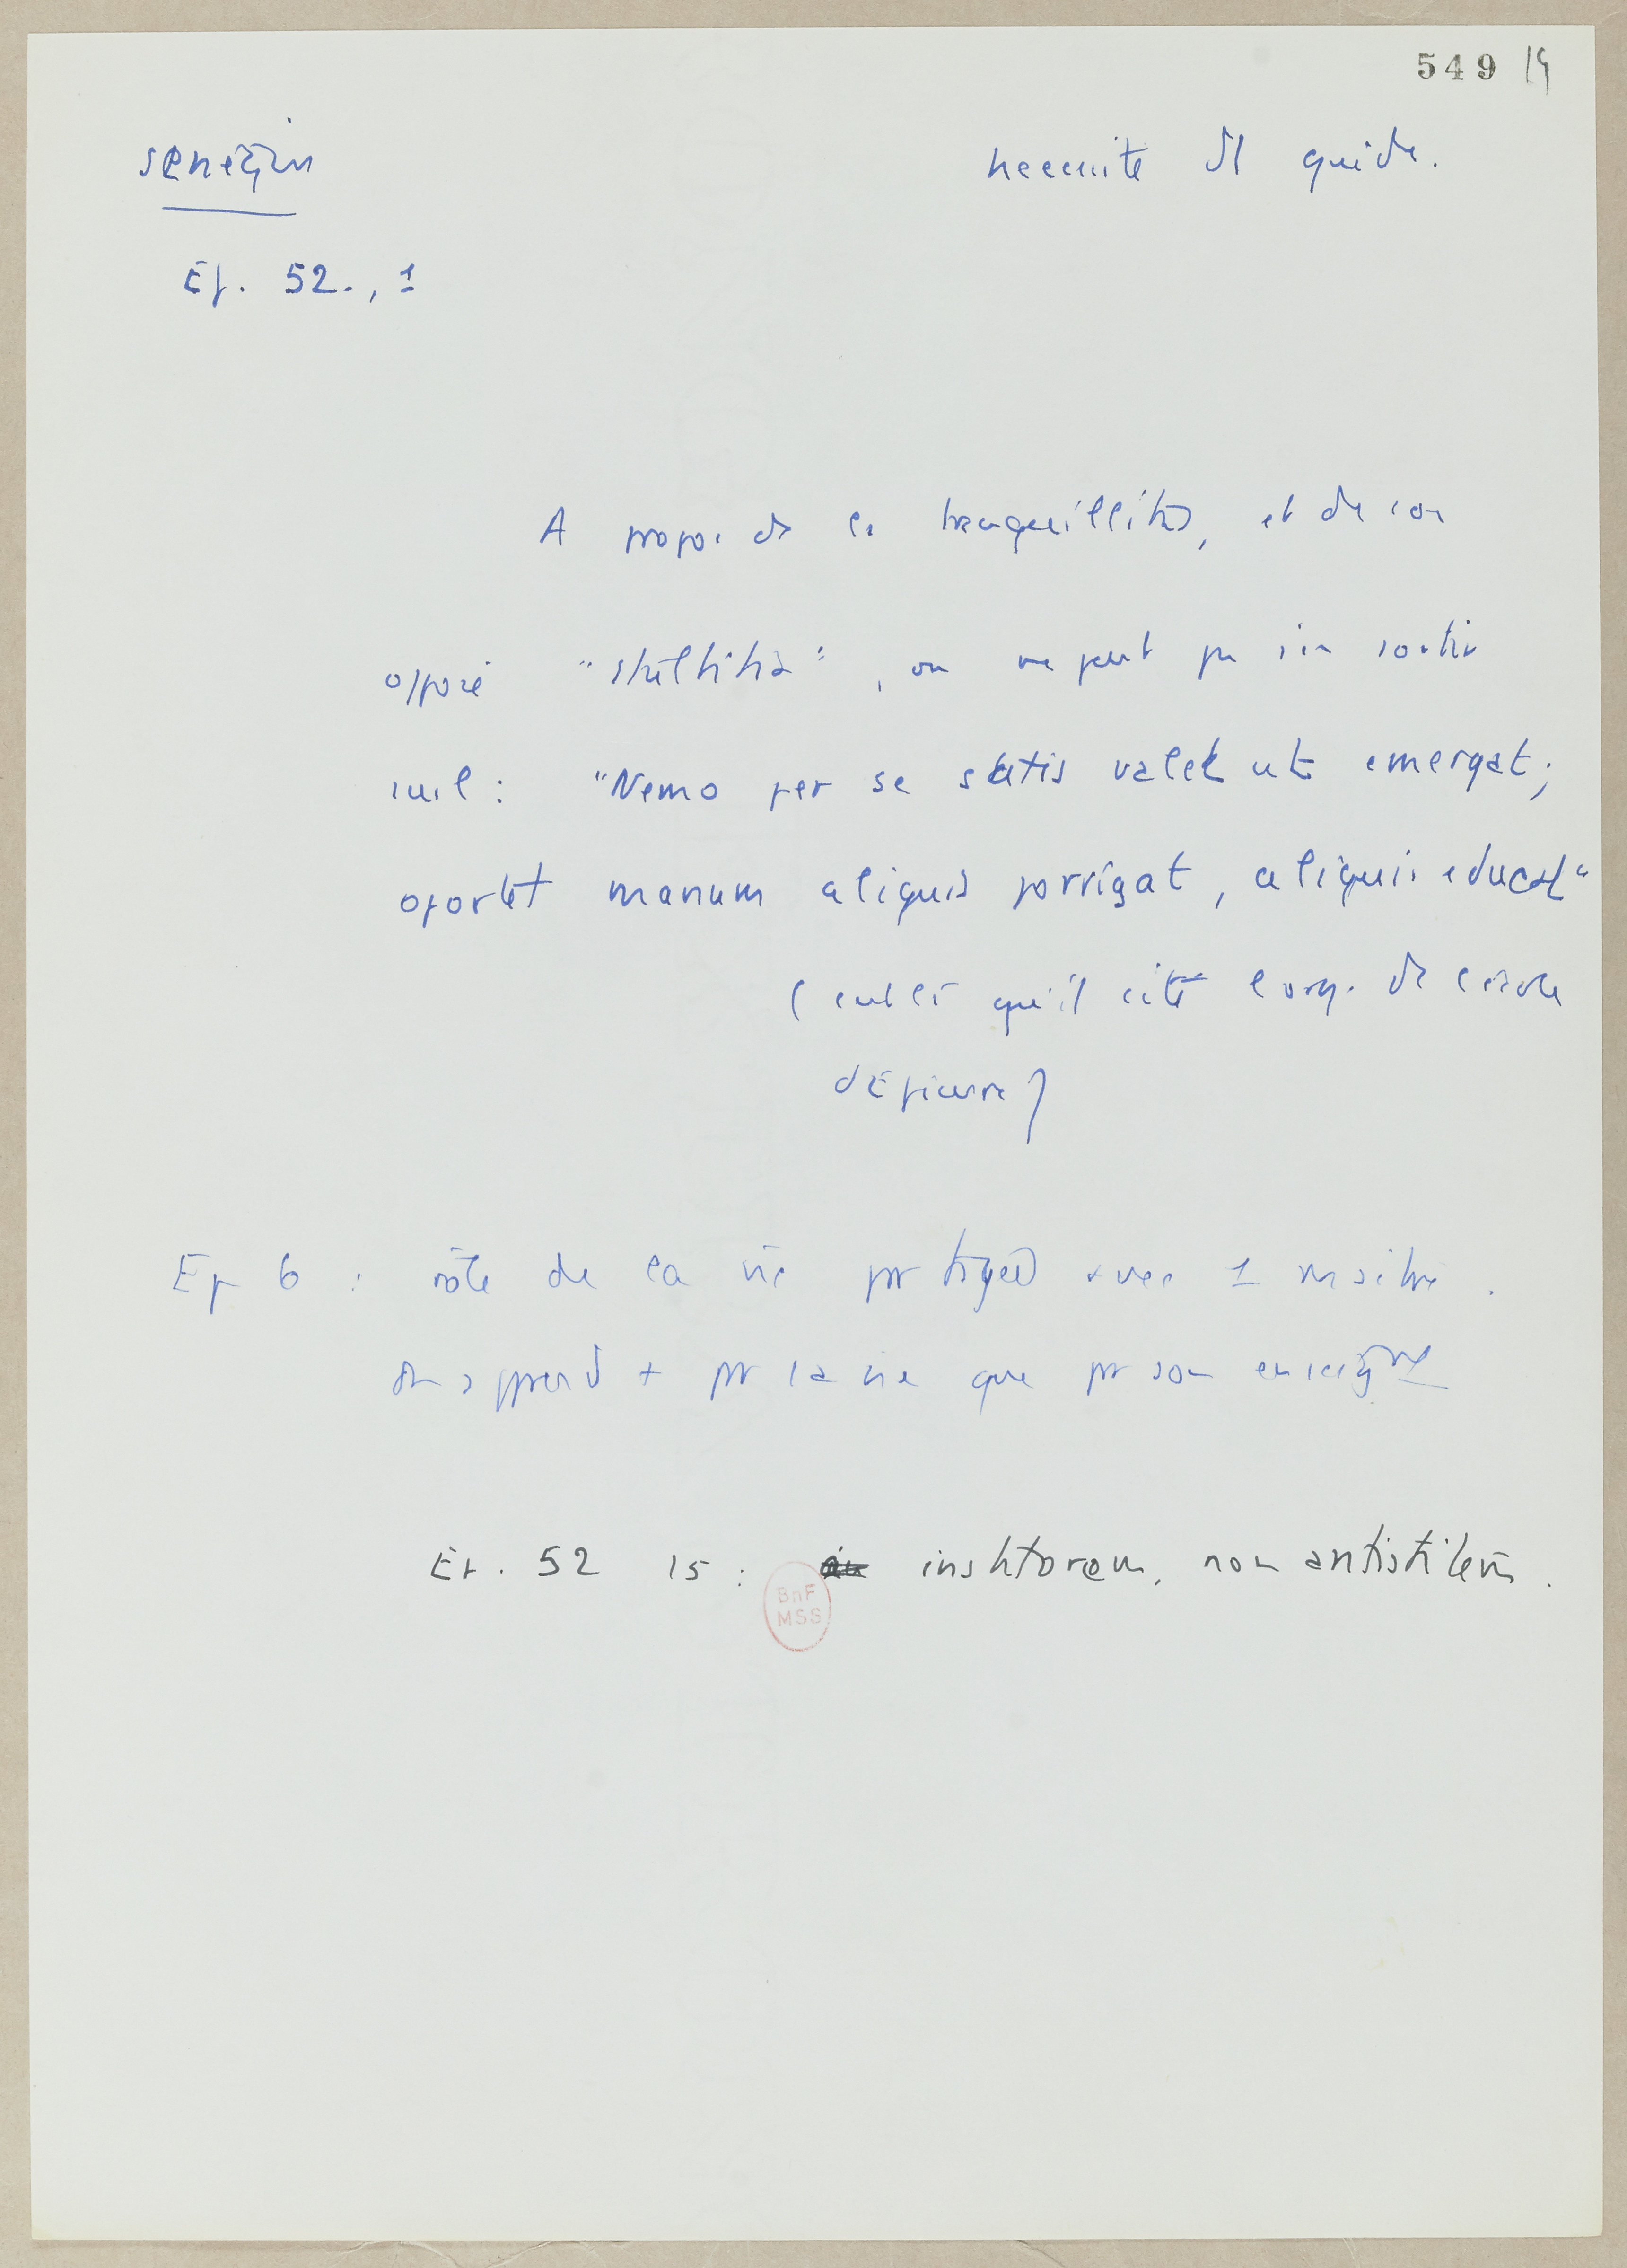 549 19
Sénèque
nécessité du guide.
Ep. 52., 1
A propos de la tranquillitas, et de son
opposé "stultitia", on ne peut pas s'en sortir
seul : "Nemo per se satis valet ut emergat;
oportet manum aliquis porrigat, aliquis educat"
( qu'il cite de
d'Epicure)
Ep 6 : rôle de la vie partagée avec 1 maître .
On apprend + par la vie que par son enseignt
Ep. 52 15 : institorem, non antistitem .
BnF
MSS